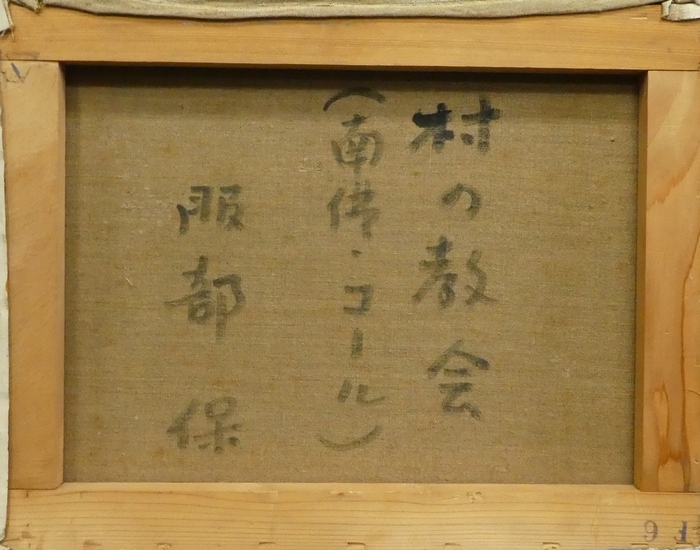 村の教会
（南佛・コール）
服部 保
9 1